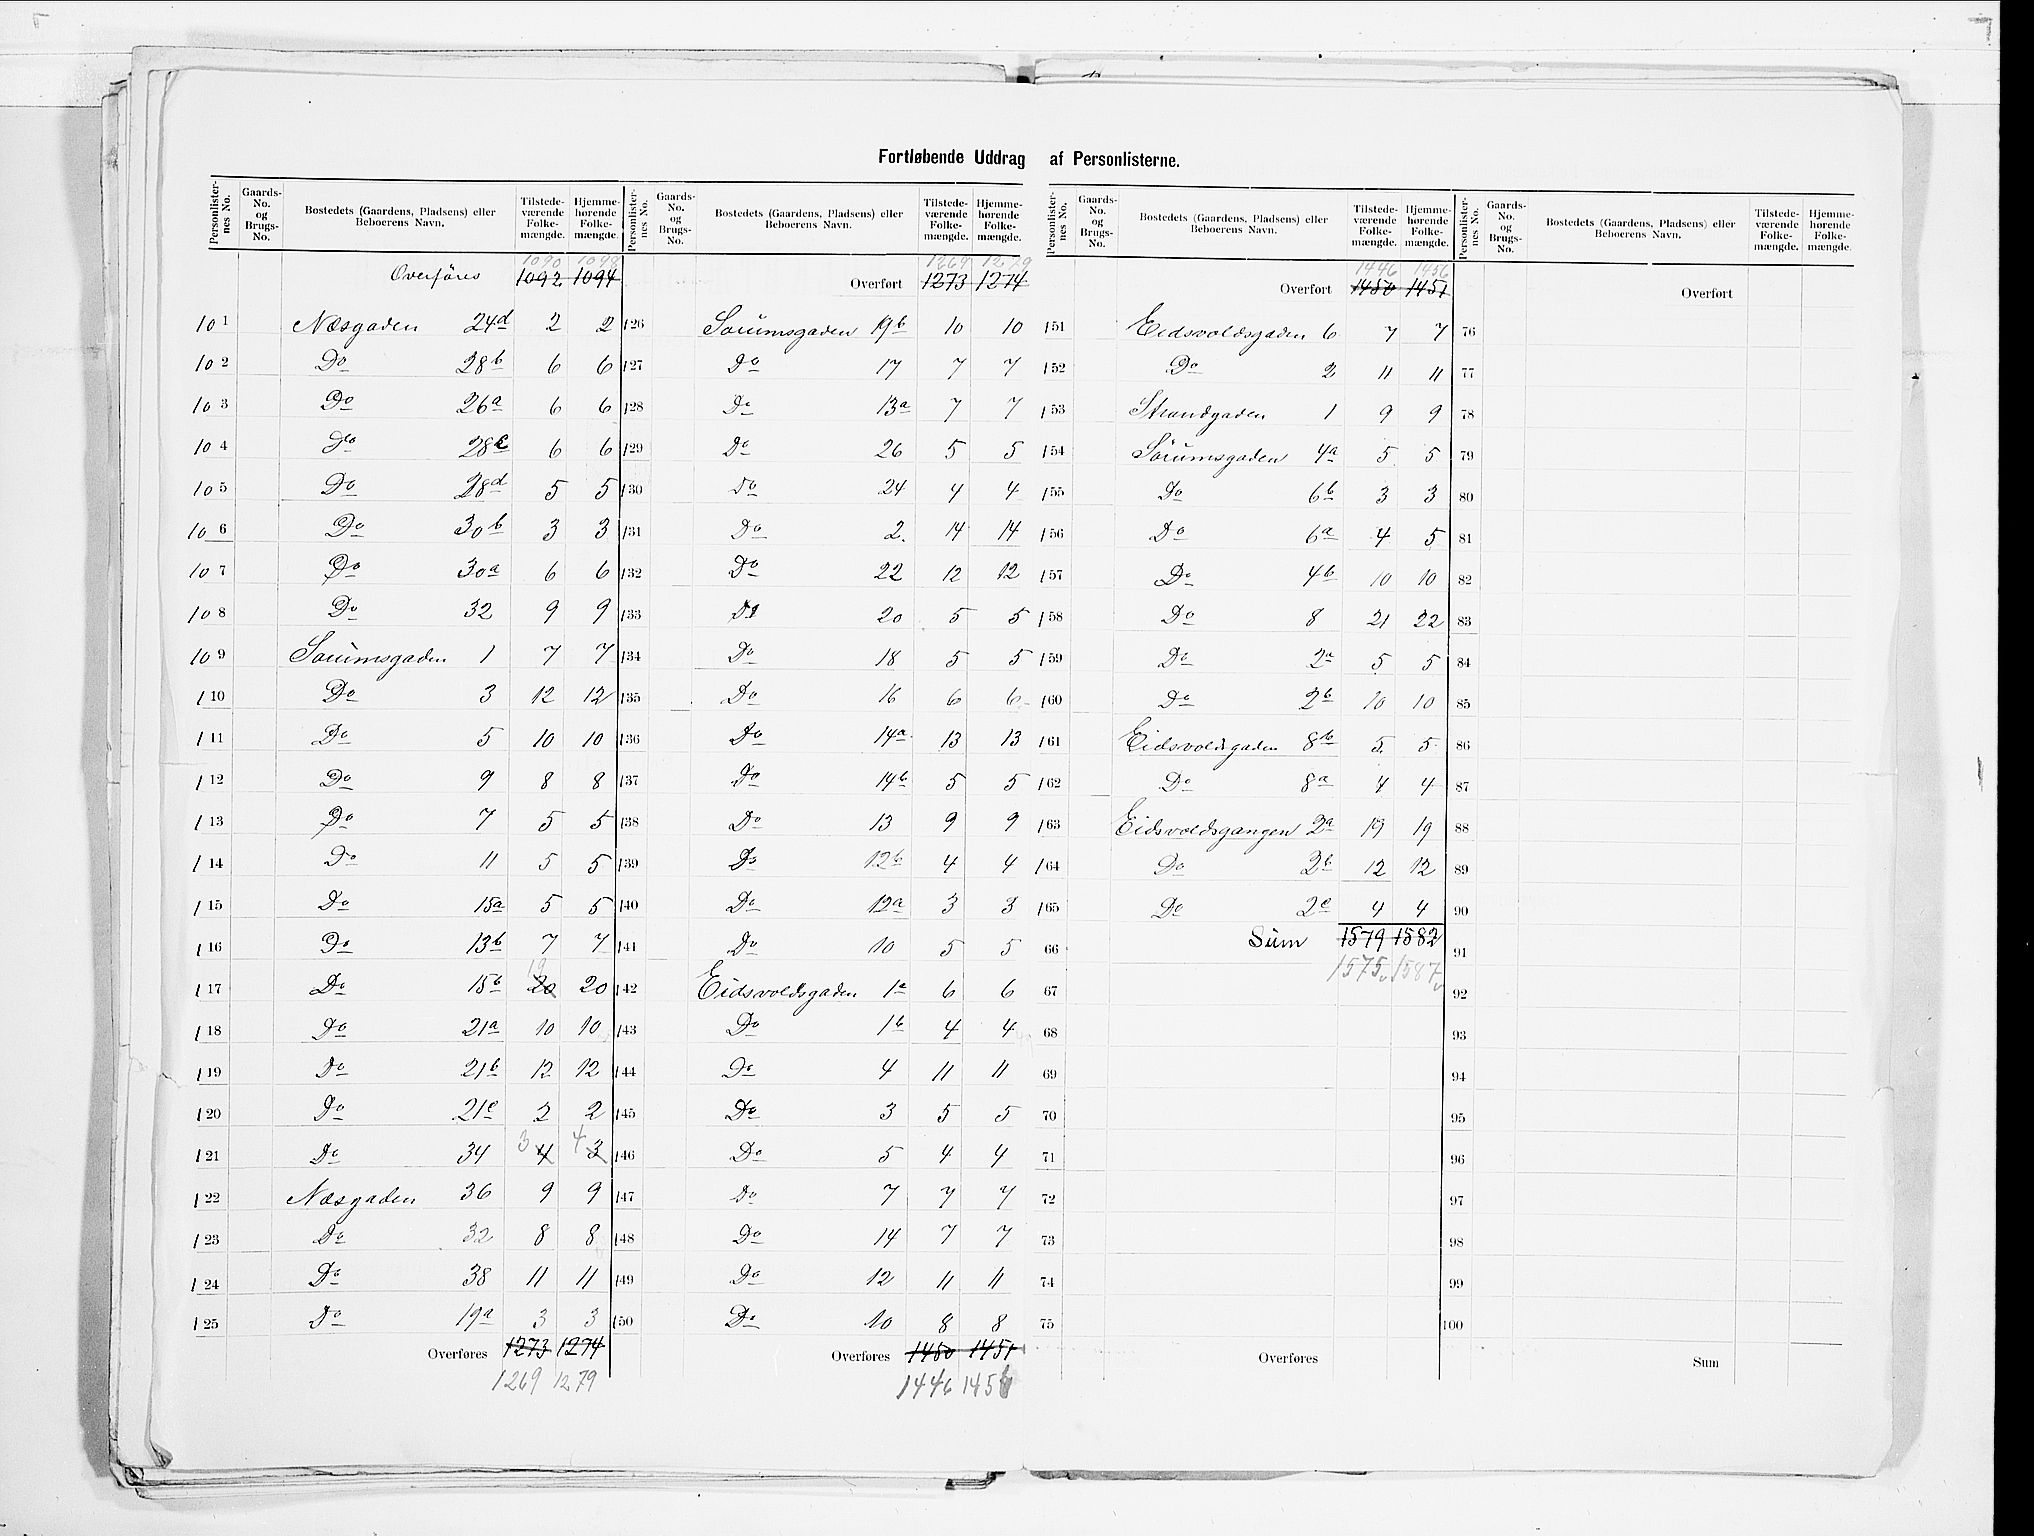 Fortløbende Uddrag af Personlisterne.
Personlister-nes No. | Gaards-No. og Brugs-No. | Bostedets (Gaardens, Pladsens) eller Beboerens Navn. | Tilstede-værende Folke-mængde. | Hjemme-hørende Folke-mængde.
1090 1098
Overføres 1092 1094
101 Næsgaden 24d 2 2
102 Do 28b 6 6
103 Do 26a 6 6
104 Do 28c 6 6
105 Do 28d 5 5
106 Do 30b 3 3
107 Do 30a 6 6
108 Do 32 9 9
109 Sørumsgaden 1 7 7
110 Do 3 12 12
111 Do 5 10 10
112 Do 9 8 8
113 Do 7 5 5
114 Do 11 5 5
115 Do 15a 5 5
116 Do 13b 7 7
117 Do 15b 20 19 20
118 Do 21a 10 10
119 Do 21b 12 12
120 Do 21c 2 2
121 Do 34 3 4 4 3
122 Næsgaden 36 9 9
123 Do 32 8 8
124 Do 38 11 11
125 Do 19a 3 3
Overføres 1273 1274
1269 1279
Personlister-nes No. | Gaards-No. og Brugs-No. | Bostedets (Gaardens, Pladsens) eller Beboerens Navn. | Tilstede-værende Folke-mængde. | Hjemme-hørende Folke-mængde.
1269 1279
Overført 1273 1274
126 Sørumsgaden 19b 10 10
127 Do 17 7 7
128 Do 13a 7 7
129 Do 26 5 5
130 Do 24 4 4
131 Do 2. 14 14
132 Do 22 12 12
133 Do 20 5 5
134 Do 18 5 5
135 Do 16 6 6
136 Do 14a 13 13
137 Do 14b 5 5
138 Do 13 9 9
139 Do 12b 4 4
140 Do 12a 3 3
141 Do 10 5 5
142 Eidsvoldsgaden 1a 6 6
143 Do 1b 4 4
144 Do 4 11 11
145 Do 3 5 5
146 Do 5 4 4
147 Do 7 7 7
148 Do 14 7 7
149 Do 12 11 11
150 Do 10 8 8
Overføres 1450 1451
1446 1456
Personlister-nes No. | Gaards-No. og Brugs-No. | Bostedets (Gaardens, Pladsens) eller Beboerens Navn. | Tilstede-værende Folke-mængde. | Hjemme-hørende Folke-mængde.
1446 1456
Overført 1450 1451
151 Eidsvoldsgaden 6 7 7
152 Do 2 11 11
153 Strandgaden 1 9 9
154 Sørumsgaden 4a 5 5
155 Do 6b 3 3
156 Do 6a 4 5
157 Do 4b 10 10
158 Do 8 21 22
159 Do 2a 5 5
160 Do 2b 10 10
161 Eidsvoldsgaden 8b 5 5
162 Do 8a 4 4
163 Eidsvoldsgangen 2a 19 19
164 Do 2b 12 12
165 Do 2c 4 4
66 Sum 1579 1582
1575 1587
67
68
69
70
71
72
73
74
75
Overføres
Personlister-nes No. | Gaards-No. og Brugs-No. | Bostedets (Gaardens, Pladsens) eller Beboerens Navn. | Tilstede-værende Folke-mængde. | Hjemme-hørende Folke-mængde.
Overført
76
77
78
79
80
81
82
83
84
85
86
87
88
89
90
91
92
93
94
95
96
97
98
99
100
Sum